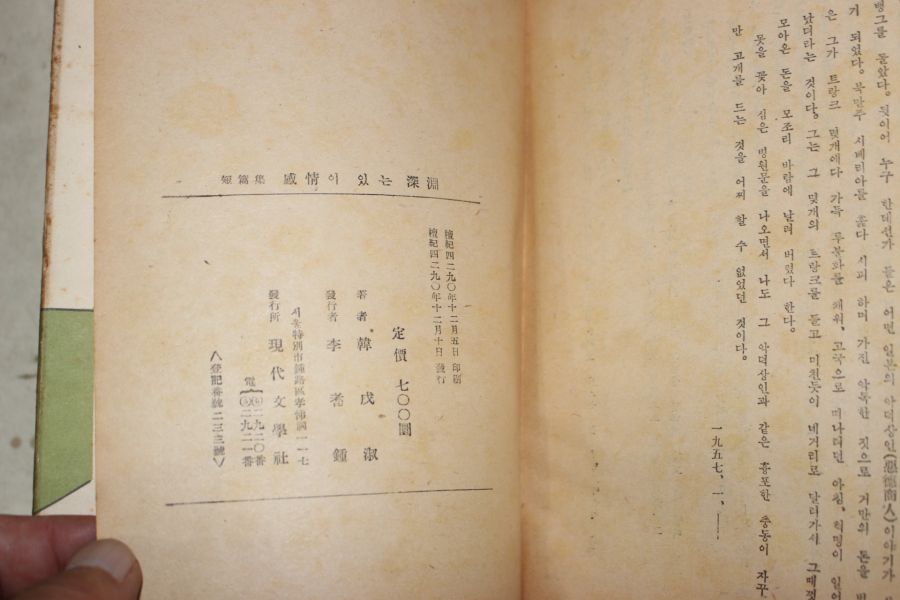 뱅그를 돌았다. 뒷이어 누구 한데선가 들은 어떤 일본의 악덕상인(惡德商人)이야기가
기 되었다. 북만주 시베리아를 옮다 시피 하며 가진 악독한 짓으로 거만의 돈을
은 그가 트랑크 몇개에다 가득 루불화를 채워, 고국으로 떠나려던 아침, 혁명이 일어
났더라는 것이다. 그는 그 몇개의 트랑크를 들고 미친듯이 네거리로 달려가서 그때껏
모아온 돈을 모조리 바람에 날려 버렸다 한다.
못을 꽂아 심은 병원문을 나오면서 나도 그 악덕상인과 같은 흉포한 충동이 자꾸
만 고개를 드는 것을 어찌 할 수 없었던 것이다.
一九五七, 一,
短篇集 感情이 있는 深淵
檀紀四二九〇年十二月五日 印刷
檀紀四二九〇年十二月十日 發行
定價 七〇〇圜
著者 韓戊淑
發行者 李 鍾
서울特別市鍾路區孝悌洞一一七
發行所 現代文學社
電 二九二〇番
二九二一番
登記番號二三三號